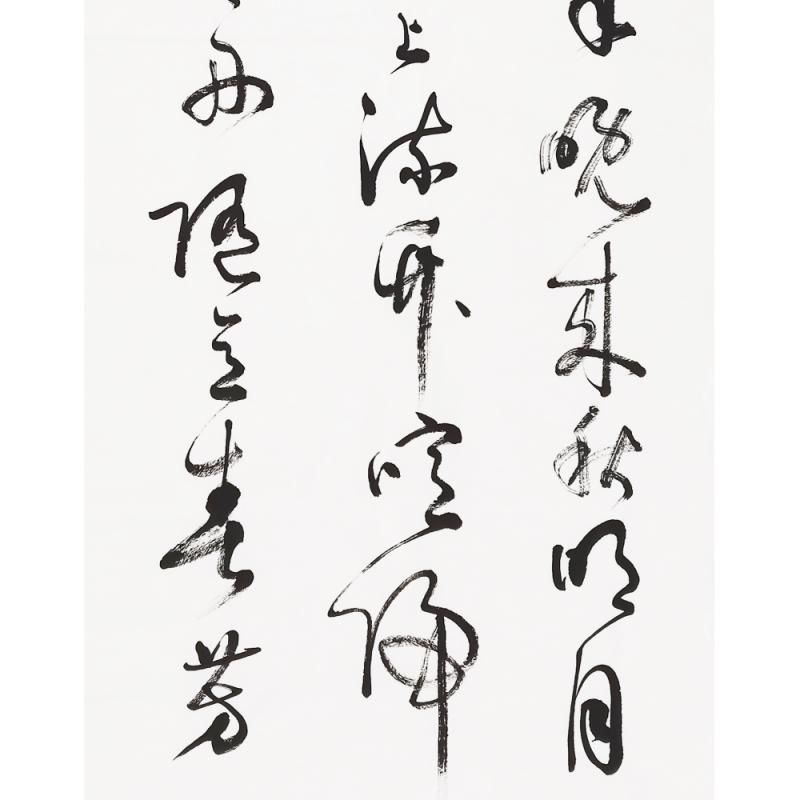 晚來秋明月
上流竹喧歸
舟隨意春芳